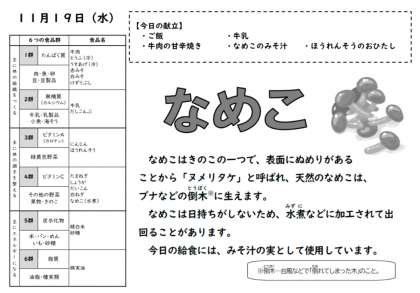 11月19日（水）
【今日の献立】
・ご飯　・牛乳
・牛肉の甘辛焼き　・なめこのみそ汁　・ほうれんそうのおひたし
6つの食品群　食品名
1群　たんぱく質
肉・魚・卵
豆・豆製品
牛肉
とうふ（冷）
うすあげ（冷）
赤みそ
白みそ
けずりぶし
2群　無機質
（カルシウム）
牛乳・乳製品
小魚・海そう
牛乳
だしこんぶ
3群　ビタミンA
（カロテン）
緑黄色野菜
にんじん
ほうれんそう
4群　ビタミンC
その他の野菜
果物・きのこ
たまねぎ
しょうが
だいこん
白ねぎ
なめこ（水煮）
5群　炭水化物
米・パン・めん
いも・砂糖
精白米
砂糖
6群　脂質
油脂・種実類
綿実油
なめこ
なめこはきのこの一つで、表面にぬめりがある
ことから「ヌメリタケ」と呼ばれ、天然のなめこは、
ブナなどの倒木※に生えます。
とうぼく
なめこは日持ちがしないため、水煮などに加工されて出
みずに
回ることがあります。
今日の給食には、みそ汁の実として使用しています。
※倒木…台風などで「倒れてしまった木」のこと。